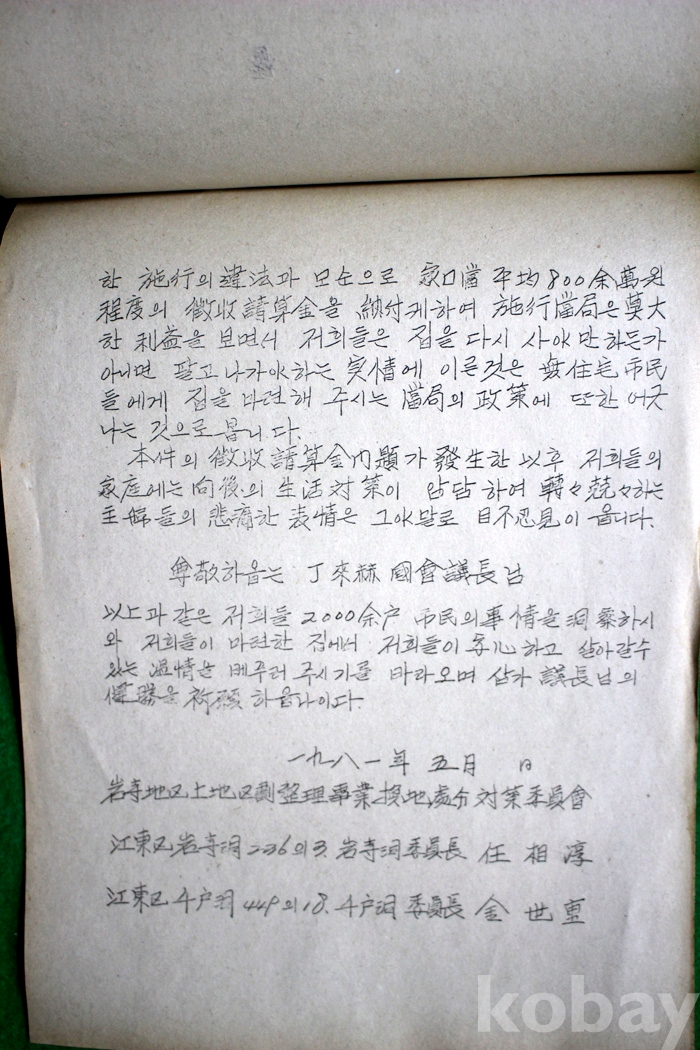 한 施行의 違法과 모순으로 家口當 平均 800余萬원
程度의 徵收請算金을 納付케하여 施行當局은 莫大
한 利益을 보면서 저희들은 집을 다시 사야만하든가
아니면 팔고 나가야하는 実情에 이른것은 無住宅市民
들에게 집을 마련해 주시는 當局의 政策에 또한 어긋
나는 것으로 봅니다.
本件의 徵收請算金問題가 發生한 以后 저희들의
家庭에는 向後의 生活対策이 암담하여 轉々兢々하는
主婦들의 悲痛한 表情은 그야말로 目不忍見이 옵니다.
尊敬하옵는 丁來赫 國會議長님
以上과 같은 저희들 2000余户 市民의 事情을 洞察하시
와 저희들이 마련한 집에서 저희들이 安心하고 살아갈수
있는 温情을 베푸러 주시기를 바라오며 삼가 議長님의
健勝을 祈願 하옵나이다.
一九八一年 五月 日
岩寺地区土地区劃整理事業換地處分対策委員會
江東区岩寺洞 236의3. 岩寺洞委員長 任相淳
江東区 4户洞 449의18. 4户洞 委員長 金世重
kobay